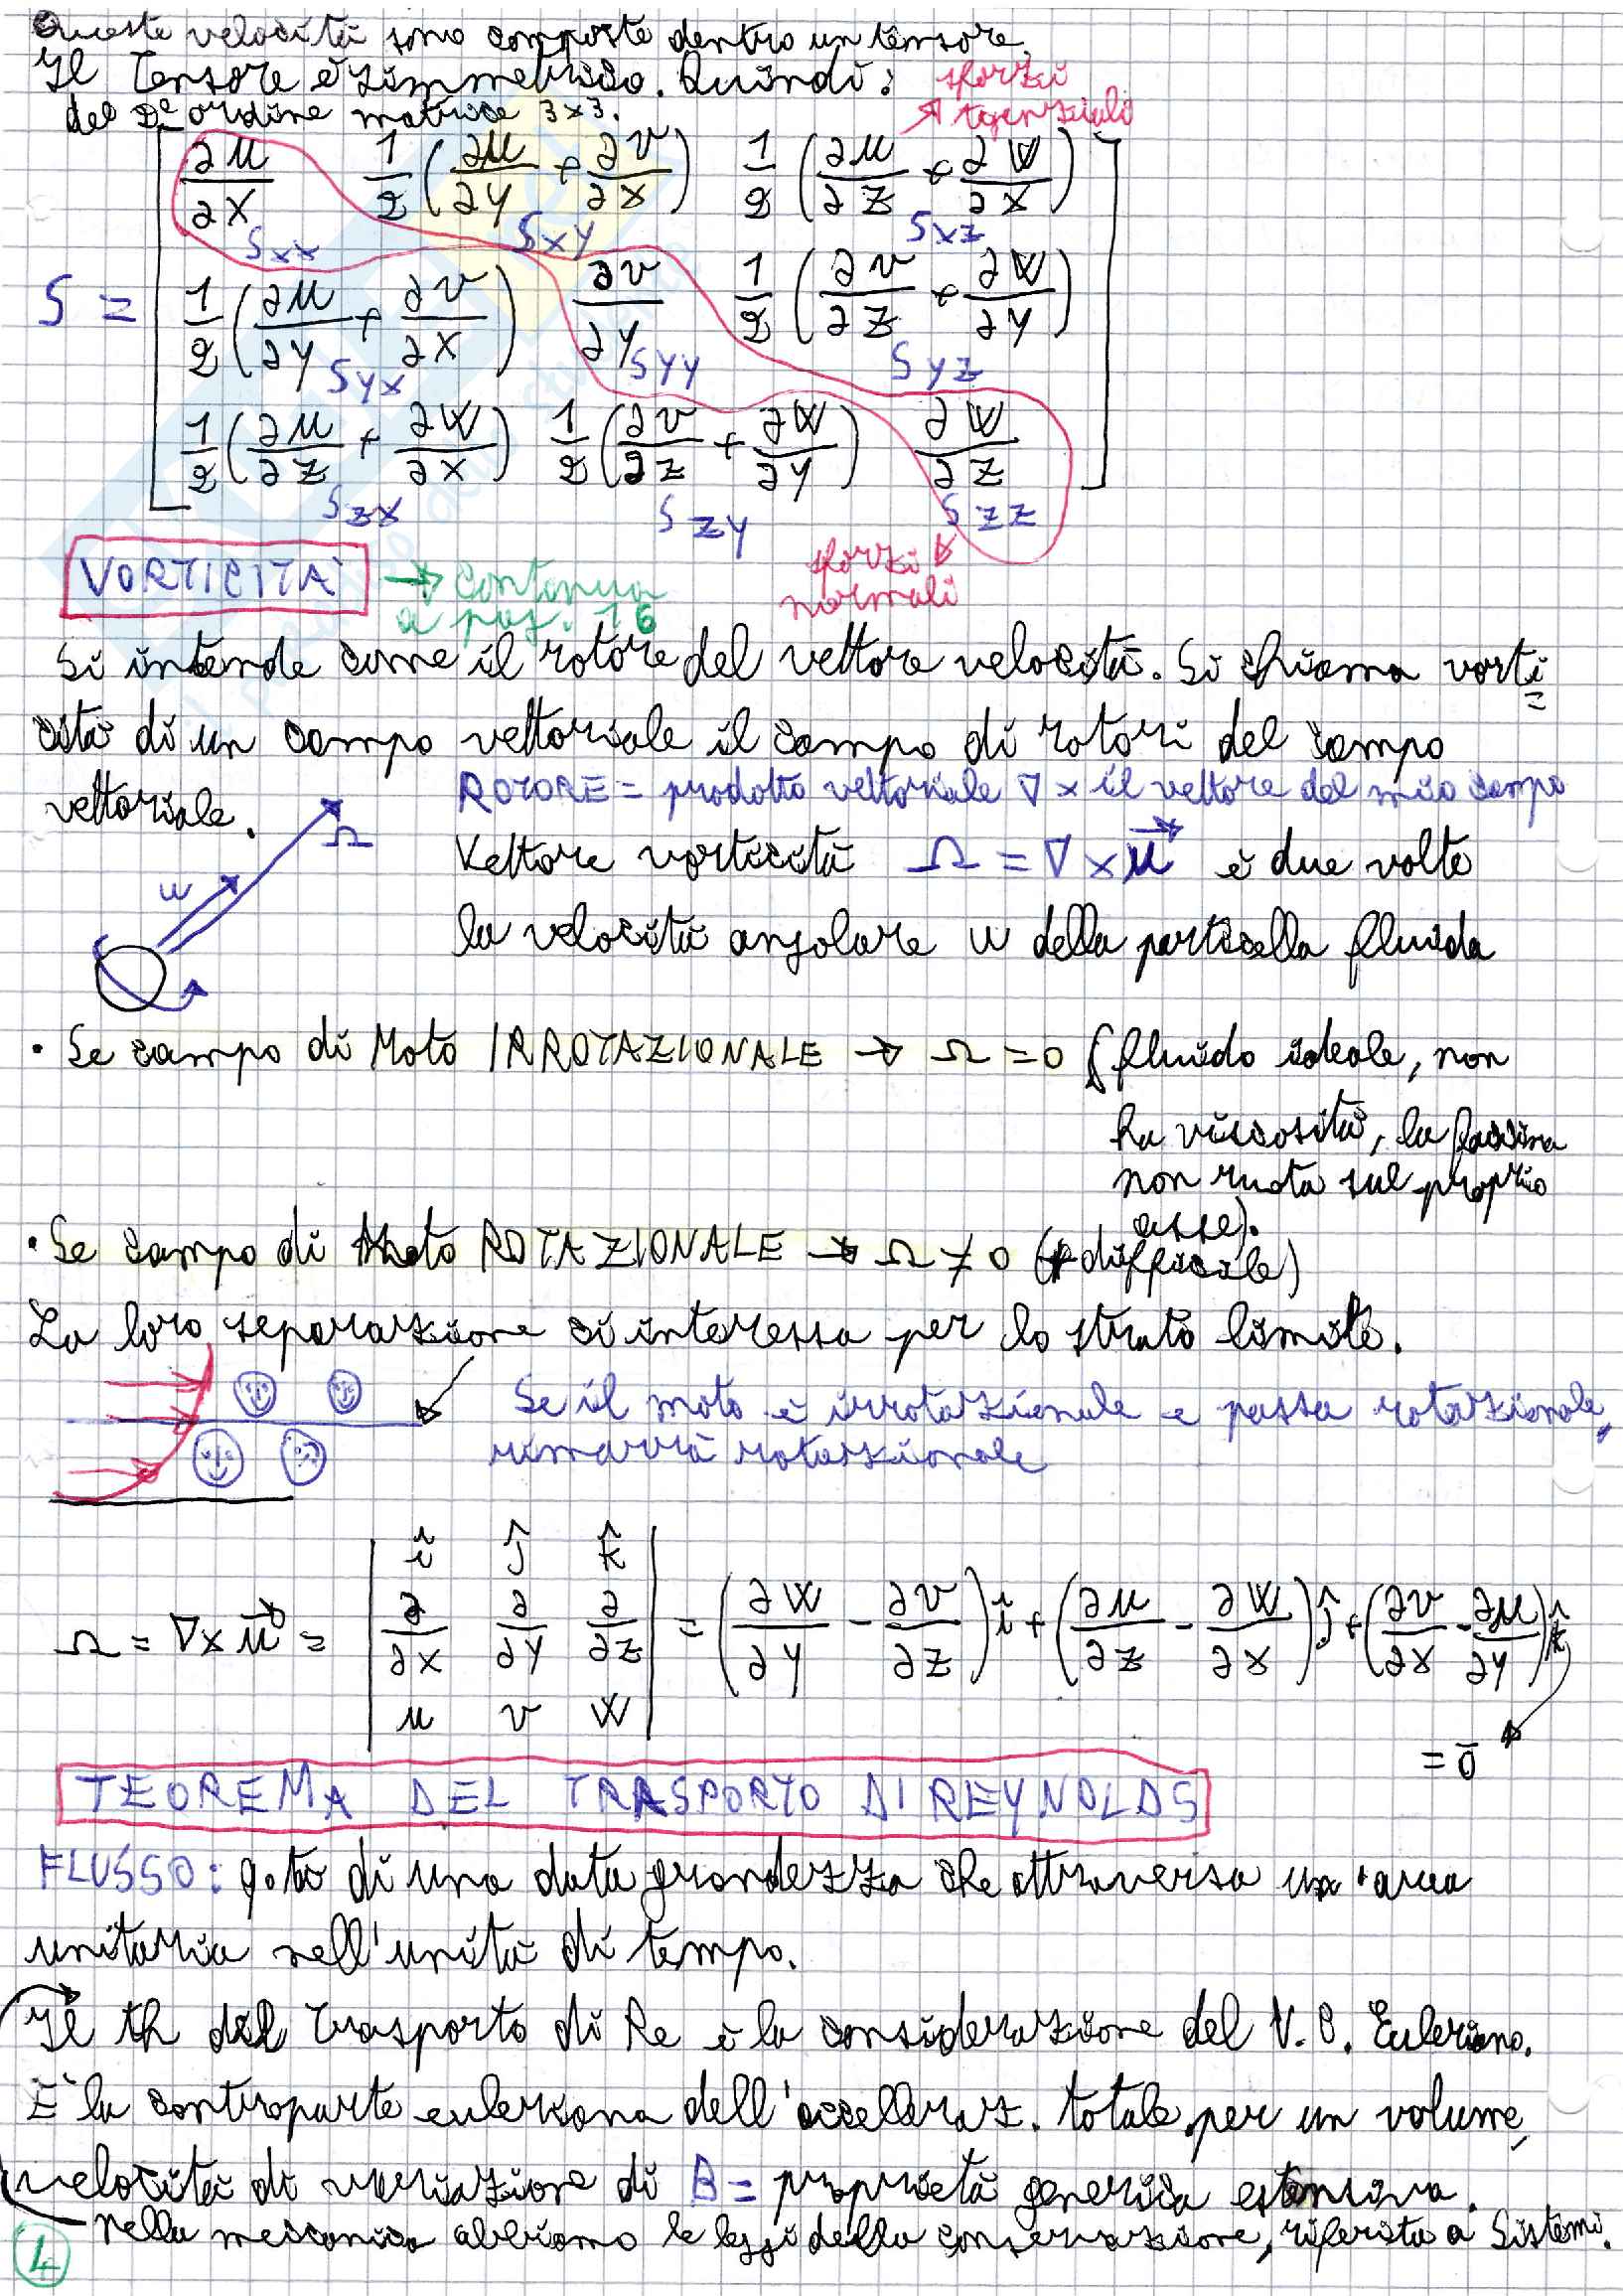 Queste velocità sono composte dentro un tensore.
Il Tensore è simmetrico. Quindi:
del 2° ordine matrice 3x3.
sforzi
tangenziali
∂u/∂x 1/2 (∂u/∂y + ∂v/∂x) 1/2 (∂u/∂z + ∂w/∂x)
Sxx Sxy Sxz
S = 1/2 (∂u/∂y + ∂v/∂x) ∂v/∂y 1/2 (∂v/∂z + ∂w/∂y)
Syx Syy Syz
1/2 (∂u/∂z + ∂w/∂x) 1/2 (∂v/∂z + ∂w/∂y) ∂w/∂z
Szx Szy Szz
sforzi
normali
VORTICITÀ → continua
a pag. 16
Si intende come il rotore del vettore velocità. Si chiama vorti=
cità di un campo vettoriale il campo di rotori del campo
vettoriale.
ROTORE = prodotto vettoriale ∇ x il vettore del mio campo
Ω
w
Vettore vorticità Ω = ∇ x u⃗ è due volte
la velocità angolare w della particella fluida
• Se campo di Moto IRROTAZIONALE → Ω = 0 (fluido ideale, non
ha viscosità, la faccina
non ruota sul proprio
asse).
• Se campo di Moto ROTAZIONALE → Ω ≠ 0 (+ difficile)
La loro separazione ci interessa per lo strato limite.
Se il moto è irrotazionale e passa rotazionale,
rimarrà rotazionale
Ω = ∇ x u⃗ = | î ĵ k̂ | ∂/∂x ∂/∂y ∂/∂z | u v w | = (∂w/∂y - ∂v/∂z) î + (∂u/∂z - ∂w/∂x) ĵ + (∂v/∂x - ∂u/∂y) k̂
= 0̄
TEOREMA DEL TRASPORTO DI REYNOLDS
FLUSSO: q.tà di una data grandezza che attraversa un'area
unitaria nell'unità di tempo.
Il th del Trasporto di Re è la considerazione del V.C. Euleriano.
È la controparte euleriana dell'acceleraz. totale per un volume,
velocità di variazione di B = proprietà generica estensiva.
nella meccanica abbiamo le leggi della conservazione, riferita a Sistemi.
4